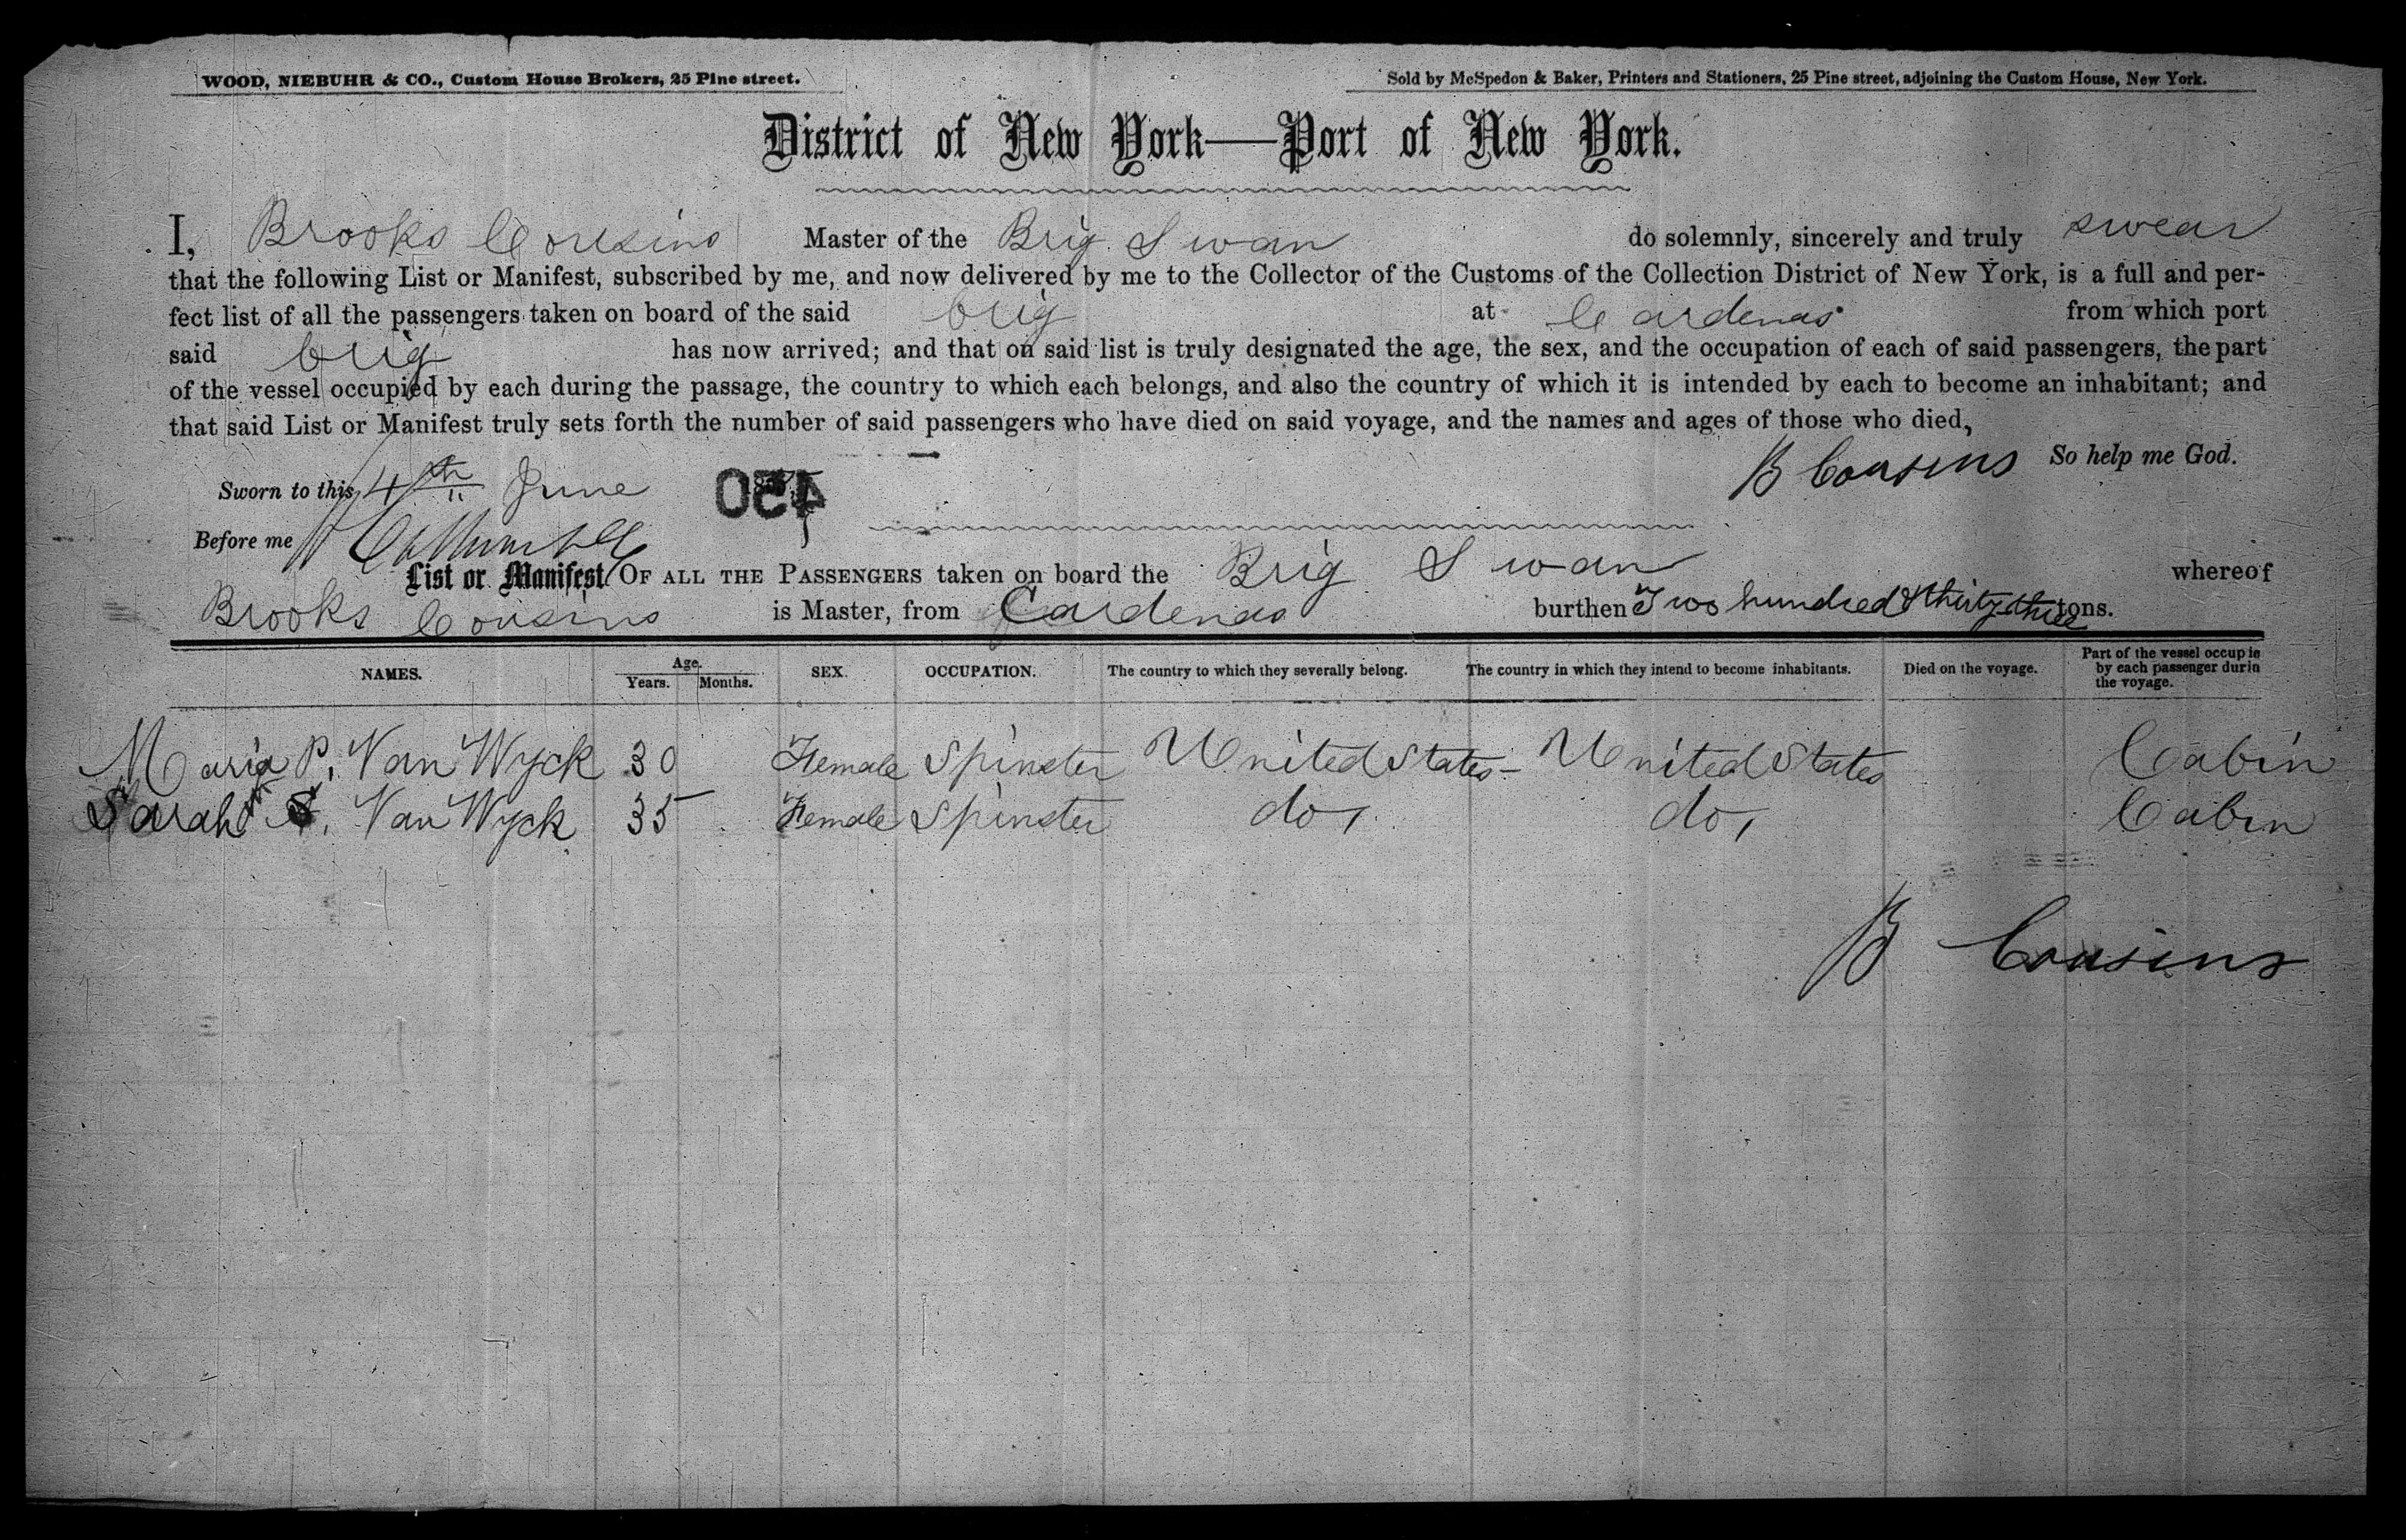 WOOD, NIEBUHR & CO., Custom House Brokers, 25 Pine street.
Sold by McSpedon & Baker, Printers and Stationers, 25 Pine street, adjoining the Custom House, New York.
District of New York—Port of New York.
I, Brooks Cousins Master of the Brig Swan do solemnly, sincerely and truly swear
that the following List or Manifest, subscribed by me, and now delivered by me to the Collector of the Customs of the Collection District of New York, is a full and per-
fect list of all the passengers taken on board of the said brig at Cardenas from which port
said brig has now arrived; and that on said list is truly designated the age, the sex, and the occupation of each of said passengers, the part
of the vessel occupied by each during the passage, the country to which each belongs, and also the country of which it is intended by each to become an inhabitant; and
that said List or Manifest truly sets forth the number of said passengers who have died on said voyage, and the names and ages of those who died,
B Cousins So help me God.
Sworn to this 4th June 450
Before me
List or Manifest OF ALL THE PASSENGERS taken on board the Brig Swan whereof
Brooks Cousins is Master, from Cardenas burthen Two hundred & thirty three tons.
NAMES. Age. Years. Months. SEX. OCCUPATION. The country to which they severally belong. The country in which they intend to become inhabitants. Died on the voyage. Part of the vessel occupie by each passenger durin the voyage.
Maria P. Van Wyck 30 Female Spinster United States - United States Cabin
Sarah S. Van Wyck 35 Female Spinster do, do, Cabin
B Cousins